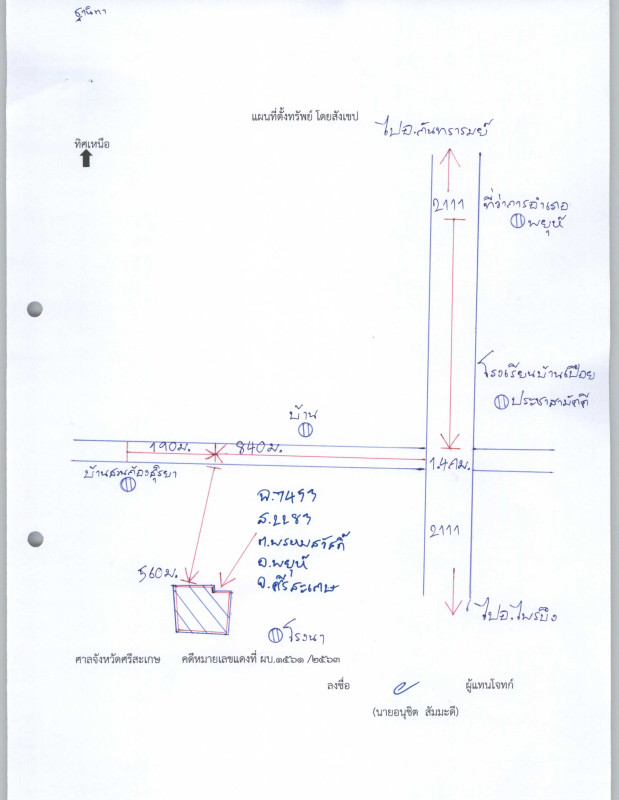 ฐานิทา
แผนที่ตั้งทรัพย์ โดยสังเขป
ไปอ.กันทรารมย์
ทิศเหนือ
2111
ที่ว่าการอำเภอ
พยุห์
โรงเรียนบ้านเปือย
ประชาสามัคคี
บ้าน
190ม.
840ม.
1.4กม.
บ้านสวนห้องสุริยา
ฉ.7493
ส.2283
ต.พรหมสวัสดิ์
อ.พยุห์
จ.ศรีสะเกษ
2111
560ม.
ไปอ.ไพรบึง
โรงนา
ศาลจังหวัดศรีสะเกษ คดีหมายเลขแดงที่ ผบ.๑๕๖๑ /๒๕๖๓
ลงชื่อ ผู้แทนโจทก์
(นายอนุชิต สัมมะดี)